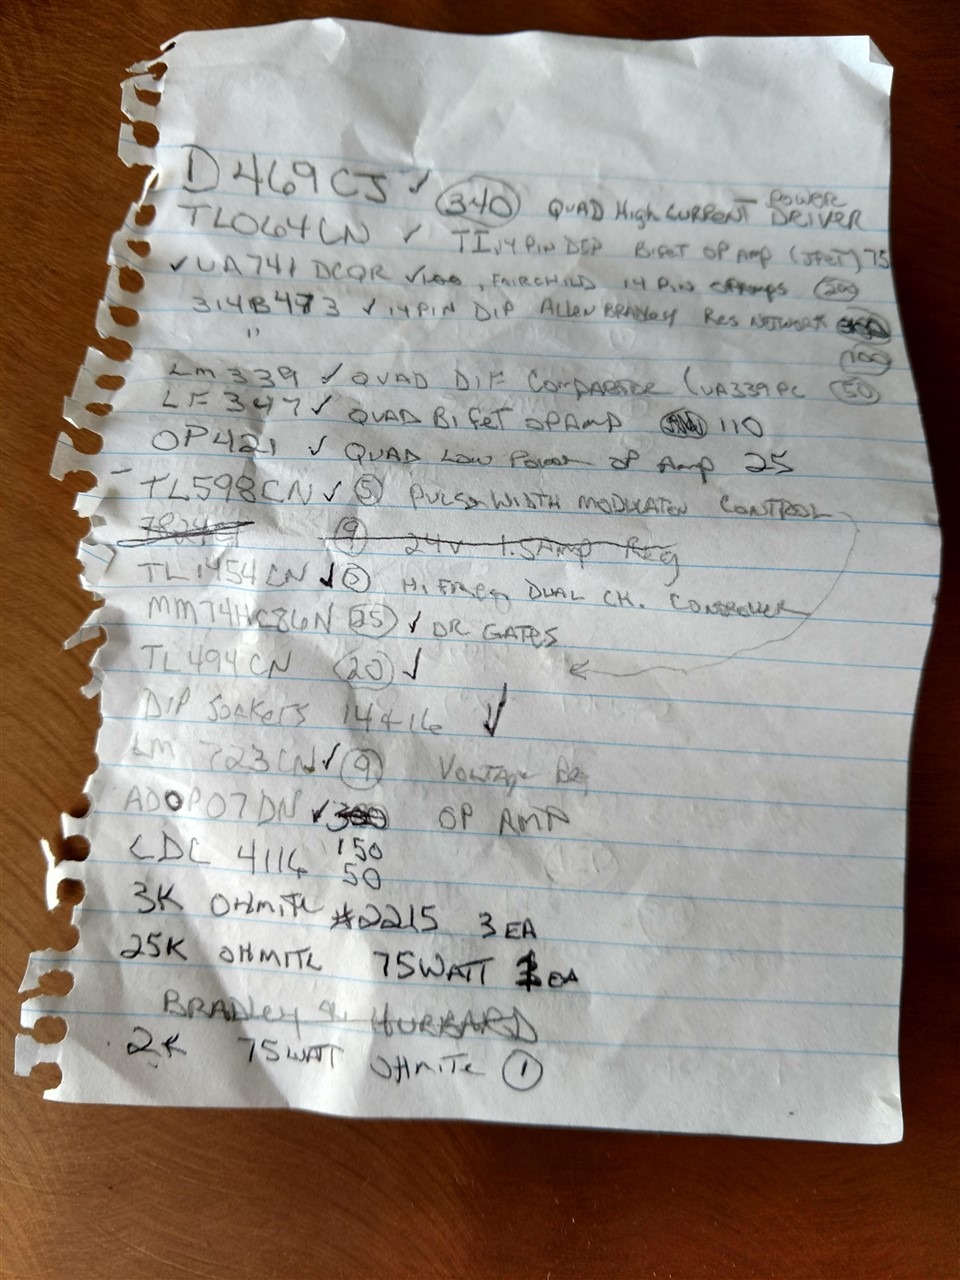 D469CJ ✓ (340) QUAD HIGH CURRENT POWER DRIVER
TL064CN ✓ TI, 14 PIN DIP BIFET OP AMP (JFET) 75
✓ UA741 DCQR ✓ 100, FAIRCHILD 14 PIN OPAMPS (200)
314B473 ✓ 14 PIN DIP ALLEN BRADLEY RES NETWORK
" (100)
LM339 ✓ QUAD DIF COMPARATOR (UA339PC (50)
LF347 ✓ QUAD BIFET OPAMP 110
OP421 ✓ QUAD LOW POWER OP AMP 25
- TL598CN ✓ (5) PULSE WIDTH MODULATEN CONTROL
(9) 24V 1.5AMP REG
TL1454CN ✓ (5) HI FREQ DUAL CH. CONTROLLER
MM74HC86N (25) ✓ OR GATES
TL494CN (20) ✓
DIP SOCKETS 14 & 16 ✓
LM 723CN ✓ (9) VOLTAGE REG
ADOP07DN ✓ OP AMP
CDC 4116 150
50
3K OHMITE #2215 3 EA
25K OHMITE 75WATT 1 EA
BRADLEY & HUBBARD
2K 75WATT OHMITE (1)